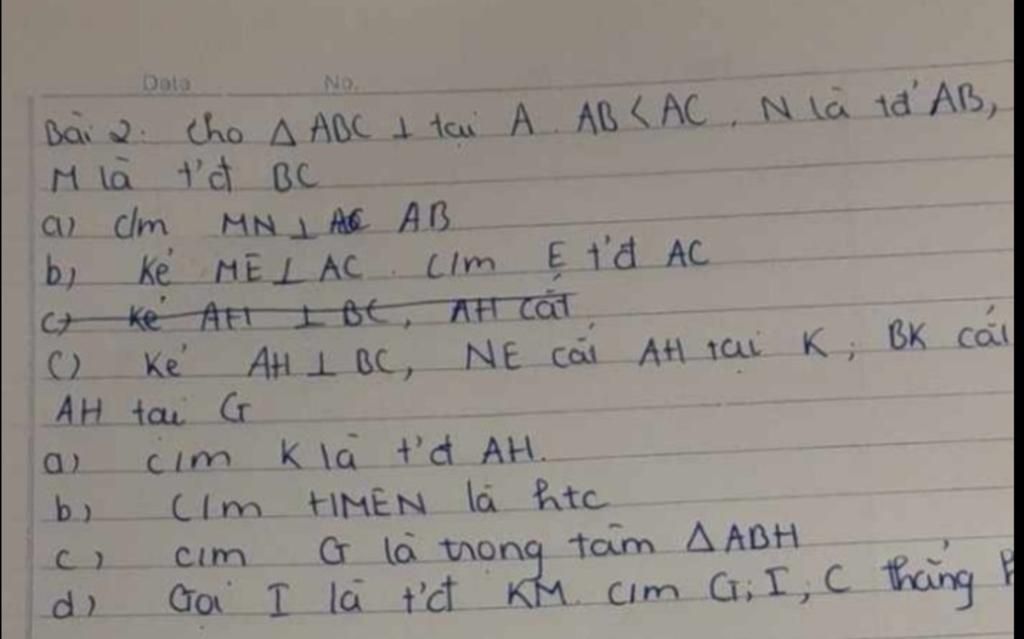 Data No.
Bài 2: Cho Δ ABC ⊥ tại A. AB < AC. N là tđ' AB,
M là t'đ BC
a) c/m MN ⊥ AC AB
b) Kẻ ME ⊥ AC. C/m E t'đ AC
c) Kẻ AH ⊥ BC, AH cắt
C) Kẻ AH ⊥ BC, NE cắt AH tại K; BK cắt
AH tại G
a) c/m K là t'đ AH.
b) C/m HMEN là htc
c) c/m G là trọng tâm Δ ABH
d) Gọi I là t'đ KM. c/m G; I; C thẳng